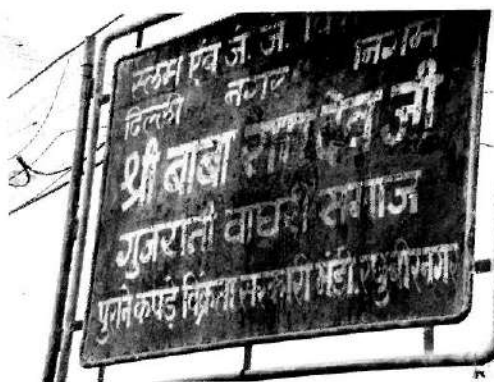 स्लम एंव जे. जे. वि
दिल्ली नगर निगम
श्री बाबा राम देव जी
गुजराती वाघरी समाज
पुराने कपड़े विक्रेता सरकारी मंडी. रघुबीर नगर